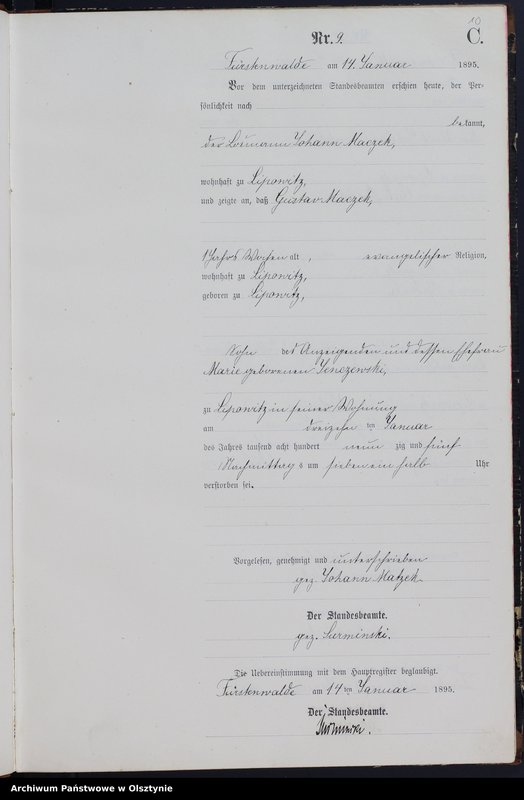 10
Nr. 9.
C.
Fürstenwalde am 14. Januar 1895.
Vor dem unterzeichneten Standesbeamten erschien heute, der Per-
sönlichkeit nach
bekannt,
der Losmann Johann Maczek,
wohnhaft zu Lipowitz,
und zeigte an, daß Gustav Maczek,
alt, evangelischer Religion,
wohnhaft zu Lipowitz,
geboren zu Lipowitz,
Sohn des Anzeigenden und dessen Ehefrau
Marie geborenen
zu Lipowitz in seiner Wohnung
am dreizehn ten Januar
des Jahres tausend acht hundert neun zig und fünf
Nachmittags um sieben ein halb Uhr
verstorben sei.
Vorgelesen, genehmigt und unterschrieben
gez. Johann Matzek
Der Standesbeamte.
gez. Sarminski.
Die Uebereinstimmung mit dem Hauptregister beglaubigt.
Fürstenwalde am 14 ten Januar 1895.
Der Standesbeamte.
Sarminski.
Archiwum Państwowe w Olsztynie